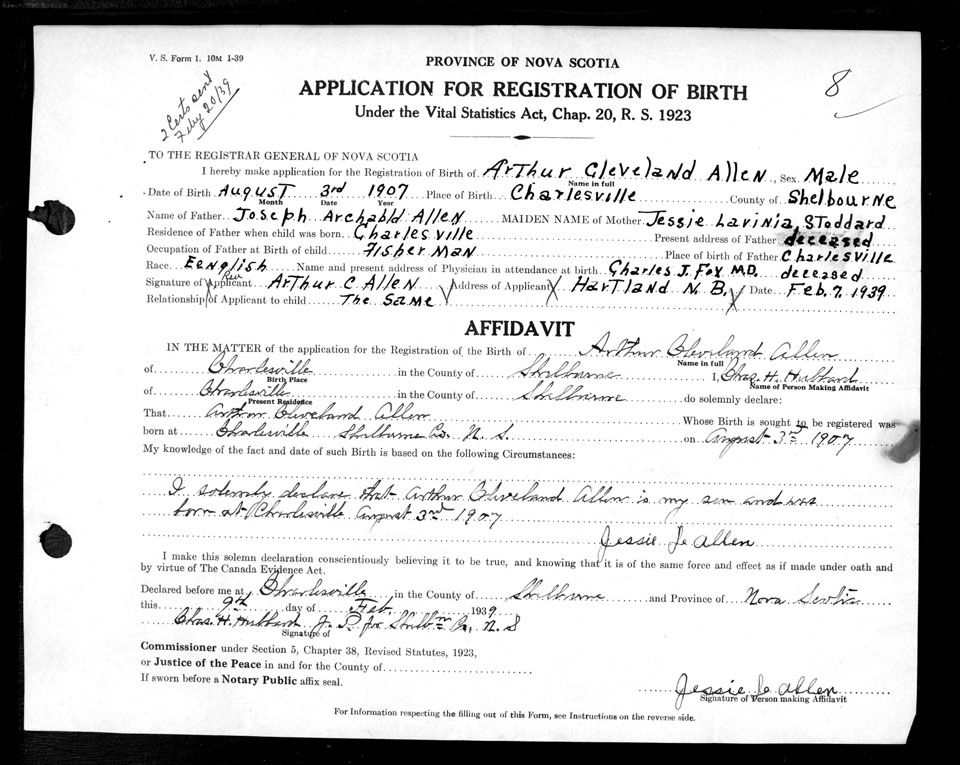 V. S. Form 1. 10M 1-39
2 Certs sent
Feby 20/39
8
PROVINCE OF NOVA SCOTIA
APPLICATION FOR REGISTRATION OF BIRTH
Under the Vital Statistics Act, Chap. 20, R. S. 1923
TO THE REGISTRAR GENERAL OF NOVA SCOTIA
I hereby make application for the Registration of Birth of Arthur Cleveland Allen, Sex Male
Name in full
Date of Birth August 3rd 1907 Place of Birth Charlesville County of Shelbourne
Month Date Year
Name of Father Joseph Archabld Allen MAIDEN NAME of Mother Jessie Lavinia Stoddard
Residence of Father when child was born Charlesville Present address of Father deceased
Occupation of Father at Birth of child Fisher Man Place of birth of Father Charlesville
Race Eenglish Name and present address of Physician in attendance at birth Charles J. Fox M.D. deceased
Signature of Applicant Rev Arthur C Allen Address of Applicant Hartland N. B. Date Feb. 7. 1939
Relationship of Applicant to child The Same
AFFIDAVIT
IN THE MATTER of the application for the Registration of the Birth of Arthur Cleveland Allen
Name in full
of Charlesville in the County of Shelburne I, Chas. H. Hubbard
Birth Place Name of Person Making Affidavit
of Charlesville in the County of Shelburne do solemnly declare:
Present Residence
That Arthur Cleveland Allen Whose Birth is sought to be registered was
born at Charlesville Shelburne Co. N. S. on August 3rd 1907
My knowledge of the fact and date of such Birth is based on the following Circumstances:
I solemnly declare that Arthur Cleveland Allen is my son and was
born at Charlesville August 3rd 1907
Jessie L Allen
I make this solemn declaration conscientiously believing it to be true, and knowing that it is of the same force and effect as if made under oath and
by virtue of The Canada Evidence Act.
Declared before me at Charlesville in the County of Shelburne and Province of Nova Scotia
this 9th day of Feb. 1939
Chas. H. Hubbard J. P. for Shelbne Co, N. S
Signature of
Commissioner under Section 5, Chapter 38, Revised Statutes, 1923,
or Justice of the Peace in and for the County of
If sworn before a Notary Public affix seal.
Jessie L Allen
Signature of Person making Affidavit
For Information respecting the filling out of this Form, see Instructions on the reverse side.